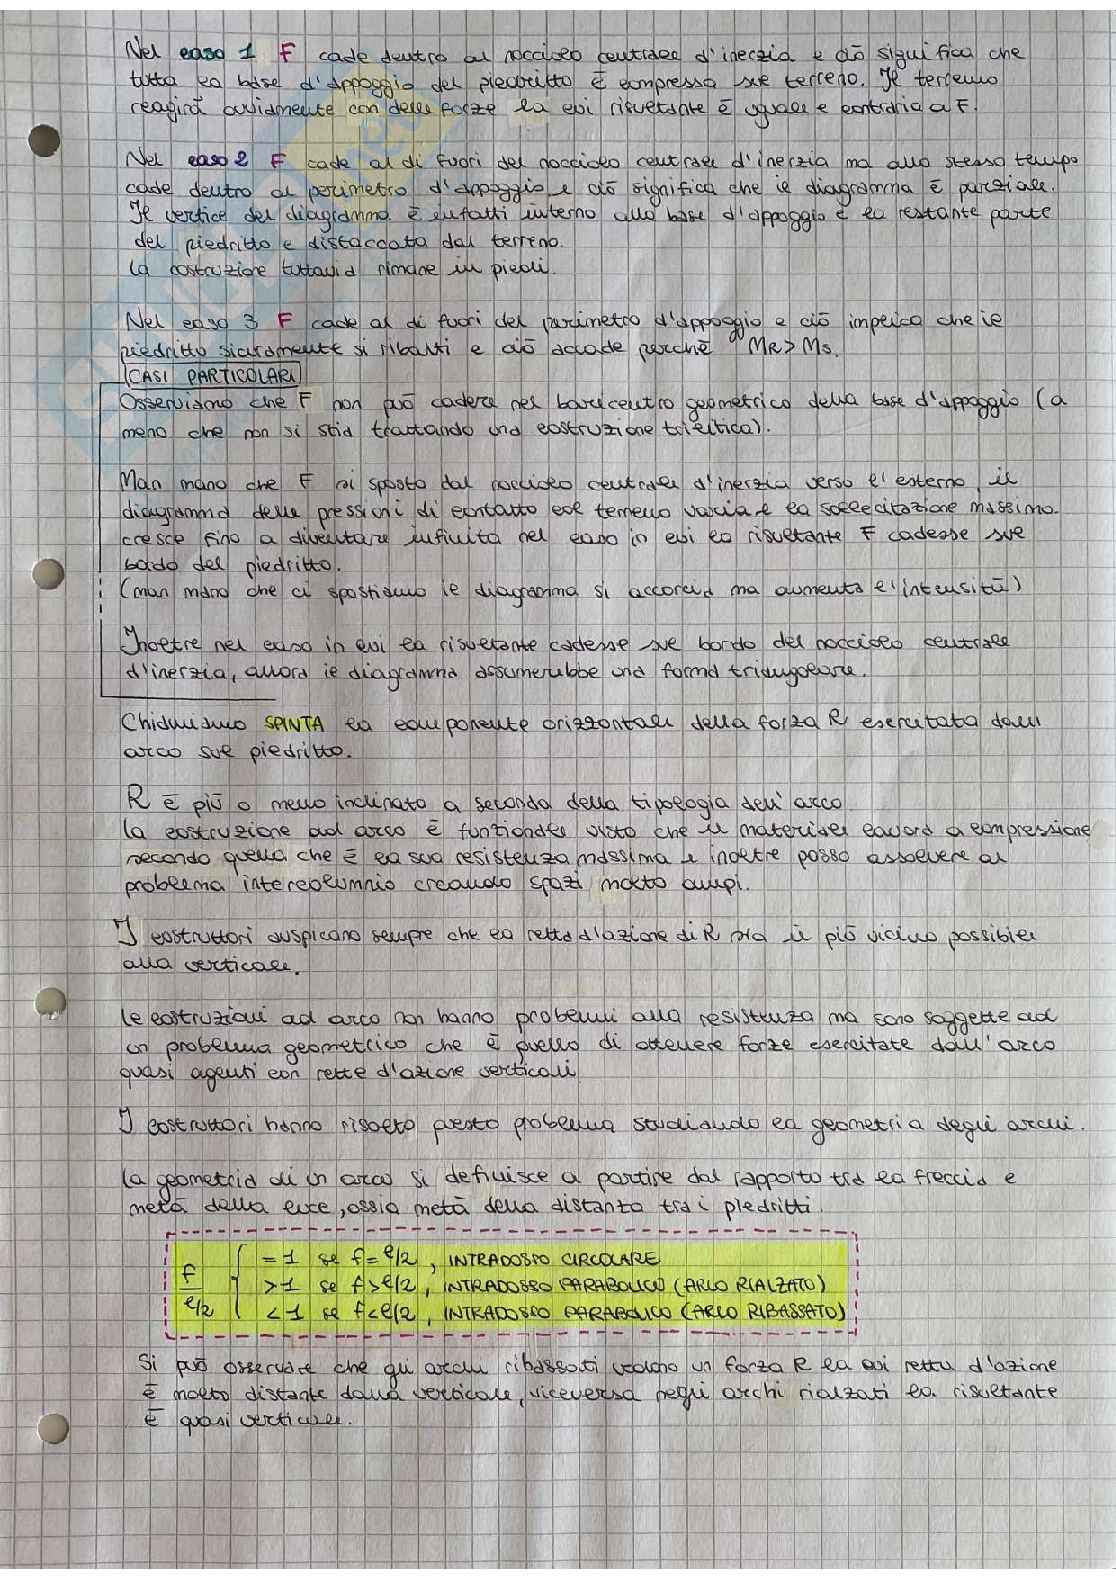 Nel caso 1 F cade dentro al nocciolo centrale d'inerzia e ciò significa che
tutta la base d'appoggio del piedritto è compressa sul terreno. Il terreno
reagirà ovviamente con delle forze la cui risultante è uguale e contraria a F.
Nel caso 2 F cade al di fuori del nocciolo centrale d'inerzia ma allo stesso tempo
cade dentro al perimetro d'appoggio e ciò significa che il diagramma è parziale.
Il vertice del diagramma è infatti interno alla base d'appoggio e la restante parte
del piedritto e distaccata dal terreno.
La costruzione tuttavia rimane in piedi.
Nel caso 3 F cade al di fuori del perimetro d'appoggio e ciò implica che il
piedritto sicuramente si ribalti e ciò accade perchè MR > Ms.
CASI PARTICOLARI
Osserviamo che F non può cadere nel baricentro geometrico della base d'appoggio (a
meno che non si stia trattando una costruzione trilitica).
Man mano che F si sposta dal nocciolo centrale d'inerzia verso l'esterno, il
diagramma delle pressioni di contatto col terreno varia e la sollecitazione massima
cresce fino a diventare infinita nel caso in cui la risultante F cadesse sul
bordo del piedritto.
(man mano che ci spostiamo il diagramma si accorcia ma aumenta l'intensità)
Inoltre nel caso in cui la risultante cadesse sul bordo del nocciolo centrale
d'inerzia, allora il diagramma assumerebbe una forma triangolare.
Chiamiamo SPINTA la componente orizzontale della forza R esercitata dall'
arco sul piedritto.
R è più o meno inclinato a seconda della tipologia dell'arco.
La costruzione ad arco è funzionale visto che il materiale lavora a compressione
secondo quella che è la sua resistenza massima e inoltre posso assolvere al
problema intercolumnio creando spazi molto ampi.
I costruttori auspicano sempre che la retta d'azione di R sia il più vicino possibile
alla verticale.
Le costruzioni ad arco non hanno problemi alla resistenza ma sono soggette ad
un problema geometrico che è quello di ottenere forze esercitate dall'arco
quasi agenti con rette d'azione verticali
I costruttori hanno risolto questo problema studiando la geometria degli archi.
La geometria di un arco si definisce a partire dal rapporto tra la freccia e
metà della luce, ossia metà della distanza tra i piedritti.
f / l/2 { = 1 se f = l/2, INTRADOSSO CIRCOLARE
> 1 se f > l/2, INTRADOSSO PARABOLICO (ARCO RIALZATO)
< 1 se f < l/2, INTRADOSSO PARABOLICO (ARCO RIBASSATO)
Si può osservare che gli archi ribassati vedono un forza R la cui retta d'azione
è molto distante dalla verticale, viceversa negli archi rialzati la risultante
è quasi verticale.